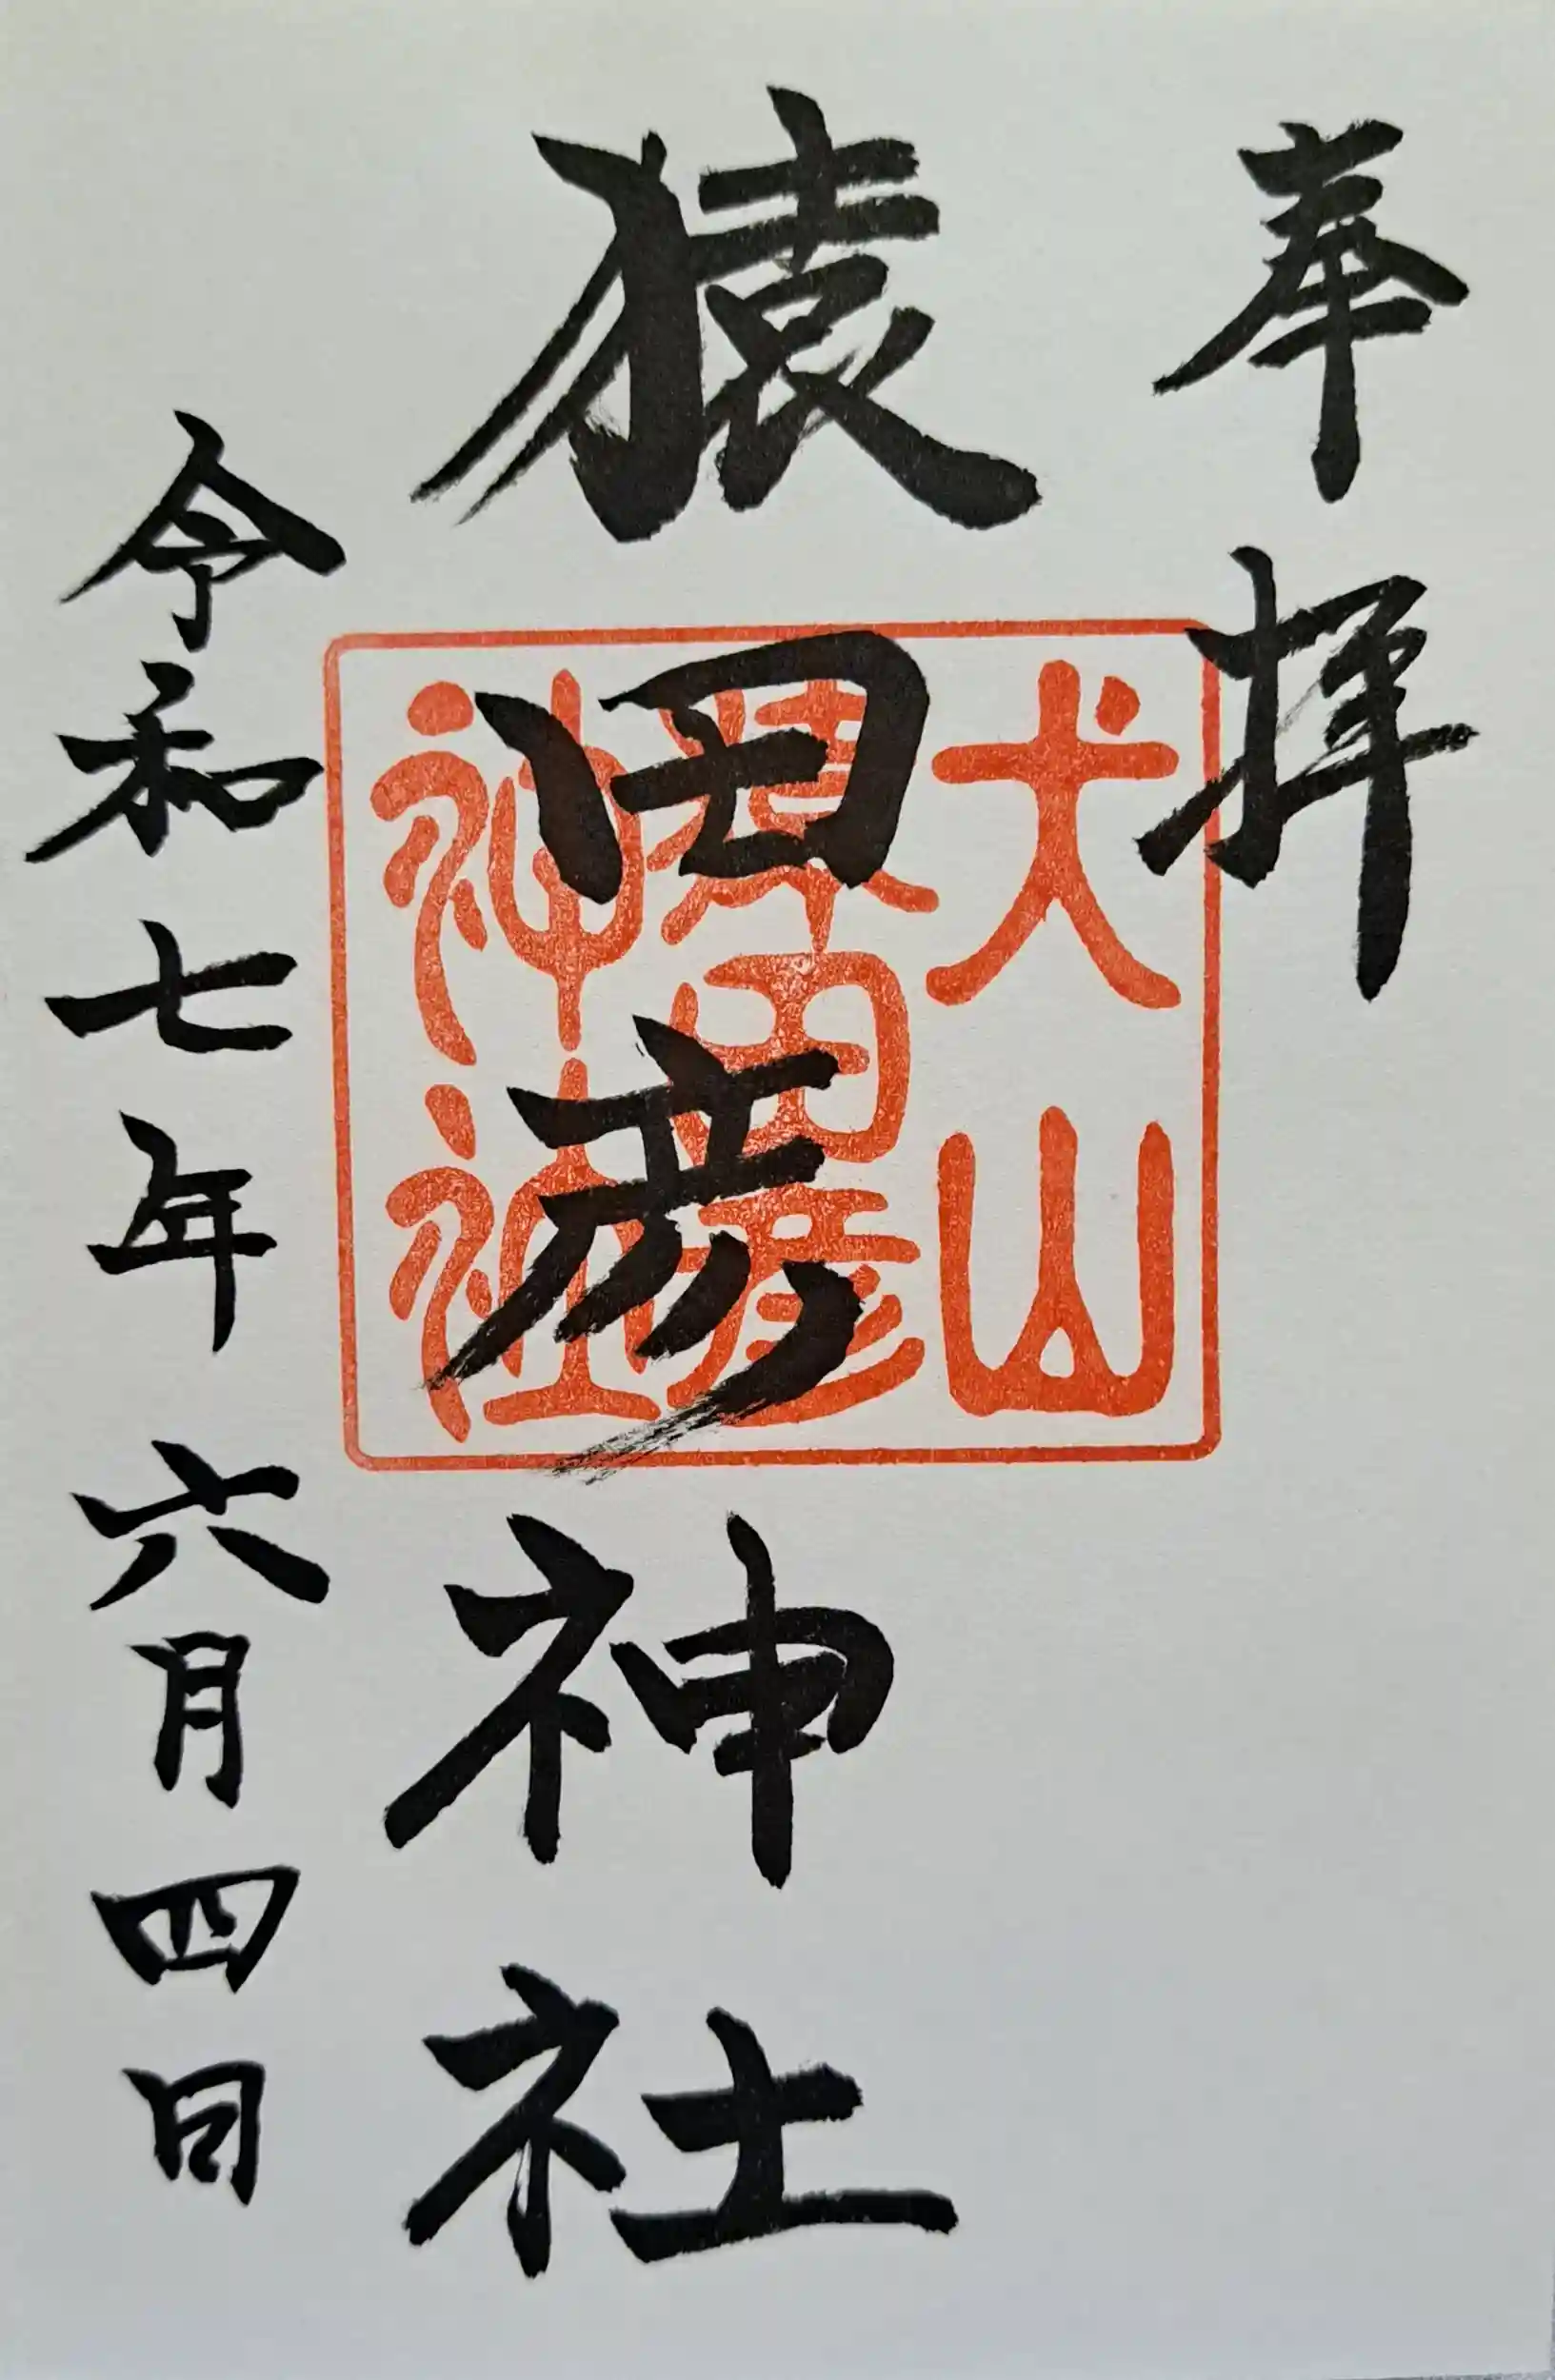 奉拝
猿田彦神社
犬山
猿田彦
神社
令和七年六月四日